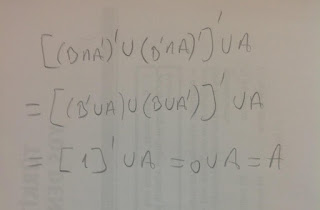 [(B∩A')'∪(B'∩A)']'∪A
=[(B'∪A)∪(B∪A')]'∪A
=[1]'∪A=0∪A=A